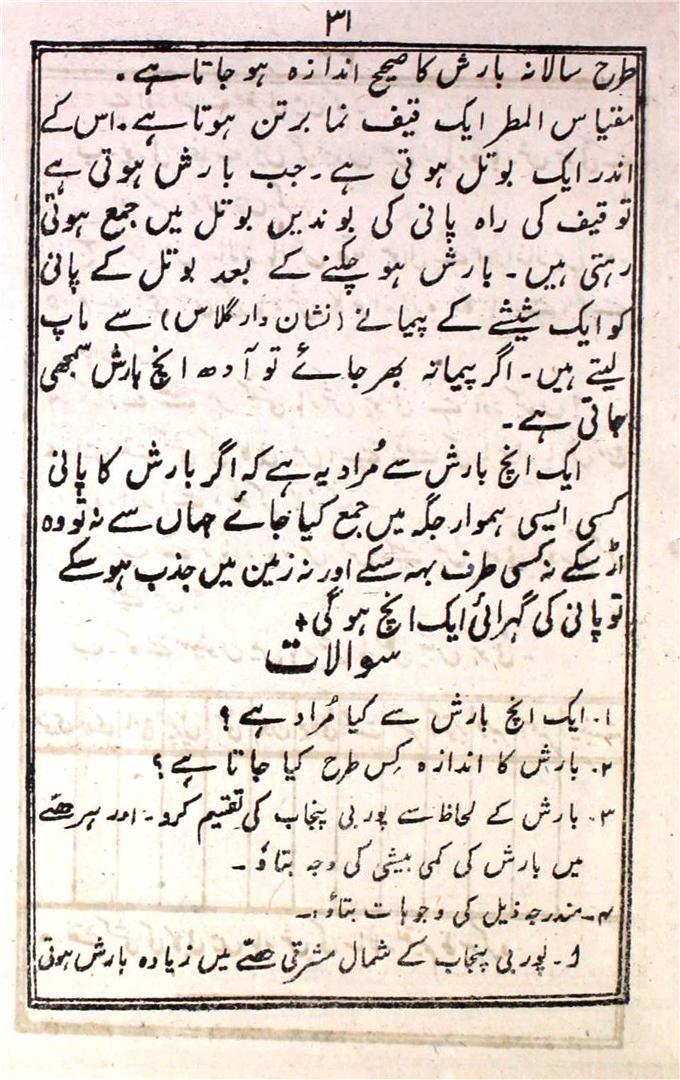 ۳۱
طرح سالانہ بارش کا صحیح اندازہ ہو جاتا ہے۔
مقیاس المطر ایک قیف نما برتن ہوتا ہے۔ اس کے
اندر ایک بوتل ہوتی ہے۔ جب بارش ہوتی ہے
تو قیف کی راہ پانی کی بوندیں بوتل میں جمع ہوتی
رہتی ہیں۔ بارش ہو چکنے کے بعد بوتل کے پانی
کو ایک شیشے کے پیمانے (نشان دار گلاس) سے ماپ
لیتے ہیں۔ اگر پیمانہ بھر جائے تو آدھ انچ بارش سمجھی
جاتی ہے۔
ایک انچ بارش سے مُراد یہ ہے کہ اگر بارش کا پانی
کسی ایسی ہموار جگہ میں جمع کیا جائے جہاں سے نہ تو وہ
اُڑ سکے نہ کسی طرف بہہ سکے اور نہ زمین میں جذب ہو سکے
تو پانی کی گہرائی ایک انچ ہو گی+
سوالات
۱۔ ایک انچ بارش سے کیا مُراد ہے؟
۲۔ بارش کا اندازہ کِس طرح کیا جاتا ہے؟
۳۔ بارش کے لحاظ سے پوربی پنجاب کی تقسیم کرو۔ اور ہر حصّے
میں بارش کی کمی بیشی کی وجہ بتاؤ۔
۴۔ مندرجہ ذیل کی وجوہات بتاؤ:۔
ا۔ پوربی پنجاب کے شمال مشرقی حصّے میں زیادہ بارش ہوتی